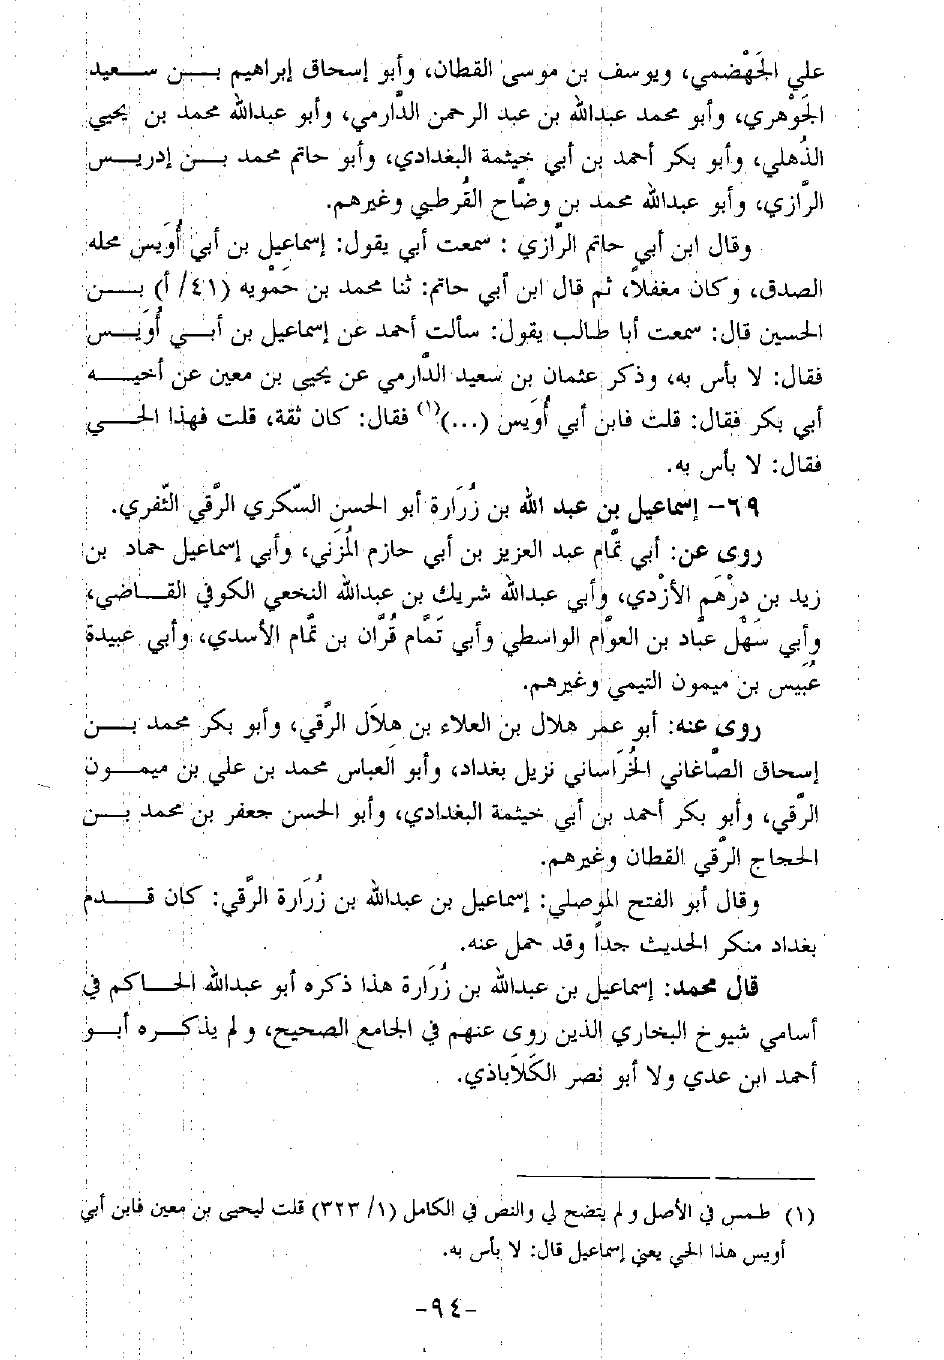 علي الجَهْضمي، ويوسف بن موسى القطان، وأبو إسحاق إبراهيم بــن سـعيد
الجَوْهري، وأبو محمد عبدالله بن عبد الرحمن الدَّارمي، وأبو عبدالله محمد بن يحيى
الذُهلي، وأبو بكر أحمد بن أبي خيثمة البغدادي، وأبو حاتم محمد بــن إدريــس
الرَّازي، وأبو عبدالله محمد بن وضَّاح القُرطبي وغيرهم.
وقال ابن أبي حاتم الرَّازي : سمعت أبي يقول: إسماعيل بن أبي أُوَيس محله
الصدق، وكان مغفلاً، ثم قال ابن أبي حاتم: ثنا محمد بن حَمْويه (٤١/ أ) بــن
الحسين قال: سمعت أبا طالب يقول: سألت أحمد عن إسماعيل بن أبــي أُوَيــس
فقال: لا بأس به، وذكر عثمان بن سعيد الدَّارمي عن يحيى بن معين عن أخيــه
أبي بكر فقال: قلت فابن أبي أُوَيس (...)(١) فقال: كان ثقة، قلت فهذا الحــي
فقال: لا بأس به.
٦٩- إسماعيل بن عبد الله بن زُرَارة أبو الحسن السّكري الرَّقي الثّغري.
روى عن: أبي تمَّام عبد العزيز بن أبي حازم المُزَني، وأبي إسماعيل حماد بن
زيد بن دِرْهَم الأزْدي، وأبي عبدالله شريك بن عبدالله النخعي الكوفي القــاضي،
وأبي سَهْل عبَّاد بن العوَّام الواسطي وأبي تَمَّام قُرَّان بن تمَّام الأسدي، وأبي عبيدة
عُبَيس بن ميمون التيمي وغيرهم.
روى عنه: أبو عمر هلال بن العلاء بن هلاَل الرَّقي، وأبو بكر محمد بــن
إسحاق الصَّاغاني الخُرَاساني نزيل بغداد، وأبو العباس محمد بن علي بن ميمــون
الرَّقي، وأبو بكر أحمد بن أبي خيثمة البغدادي، وأبو الحسن جعفر بن محمد بــن
الحجاج الرَّقي القطان وغيرهم.
وقال أبو الفتح الموصلي: إسماعيل بن عبدالله بن زُرَارة الرَّقي: كان قــدم
بغداد منكر الحديث جداً وقد حمل عنه.
قال محمد: إسماعيل بن عبدالله بن زُرَارة هذا ذكره أبو عبدالله الحــاكم في
أسامي شيوخ البخاري الذين روى عنهم في الجامع الصحيح، ولم يذكــره أبــو
أحمد ابن عدي ولا أبو نصر الكَلاَباذي.
(١) طمس في الأصل ولم يتضح لي والنص في الكامل (١/ ٣٢٣) قلت ليحيى بن معين فابن أبي
أويس هذا الحي يعني إسماعيل قال: لا بأس به.
-٩٤-